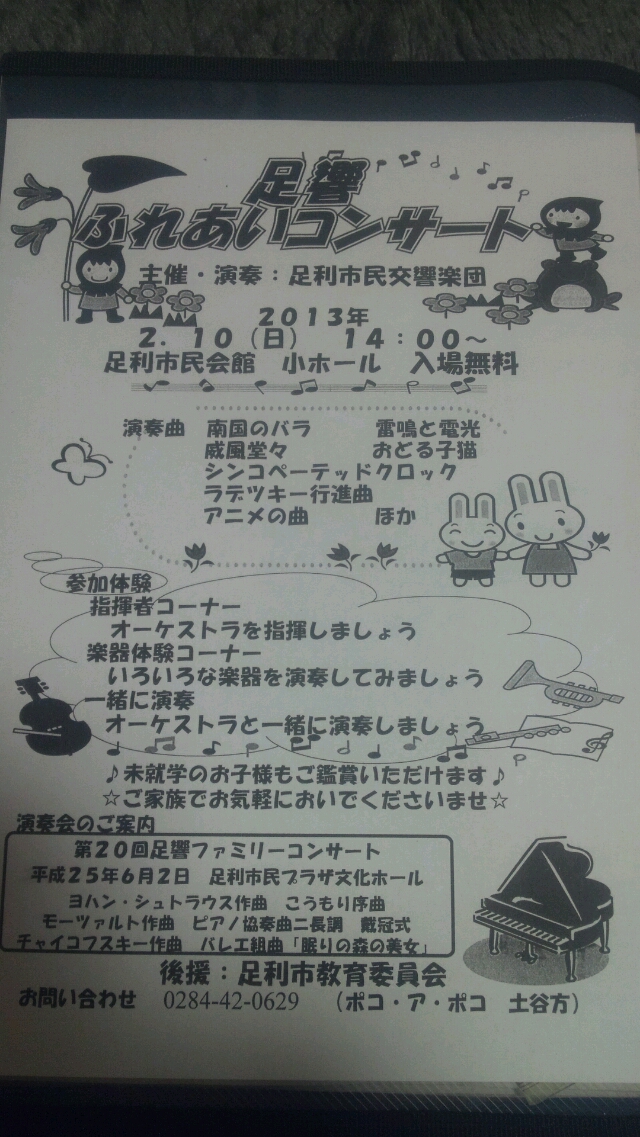 足響
ふれあいコンサート
主催・演奏：足利市民交響楽団
2013年
2．10（日）　14：00～
足利市民会館　小ホール　入場無料
演奏曲　南国のバラ　雷鳴と電光
威風堂々　おどる子猫
シンコペーテッドクロック
ラデツキー行進曲
アニメの曲　ほか
参加体験
指揮者コーナー
オーケストラを指揮しましょう
楽器体験コーナー
いろいろな楽器を演奏してみましょう
一緒に演奏
オーケストラと一緒に演奏しましょう
♪未就学のお子様もご鑑賞いただけます♪
☆ご家族でお気軽においでくださいませ☆
演奏会のご案内
第20回足響ファミリーコンサート
平成25年6月2日　足利市民プラザ文化ホール
ヨハン・シュトラウス作曲　こうもり序曲
モーツァルト作曲　ピアノ協奏曲ニ長調　戴冠式
チャイコフスキー作曲　バレエ組曲「眠りの森の美女」
後援：足利市教育委員会
お問い合わせ　0284-42-0629　（ポコ・ア・ポコ　土谷方）